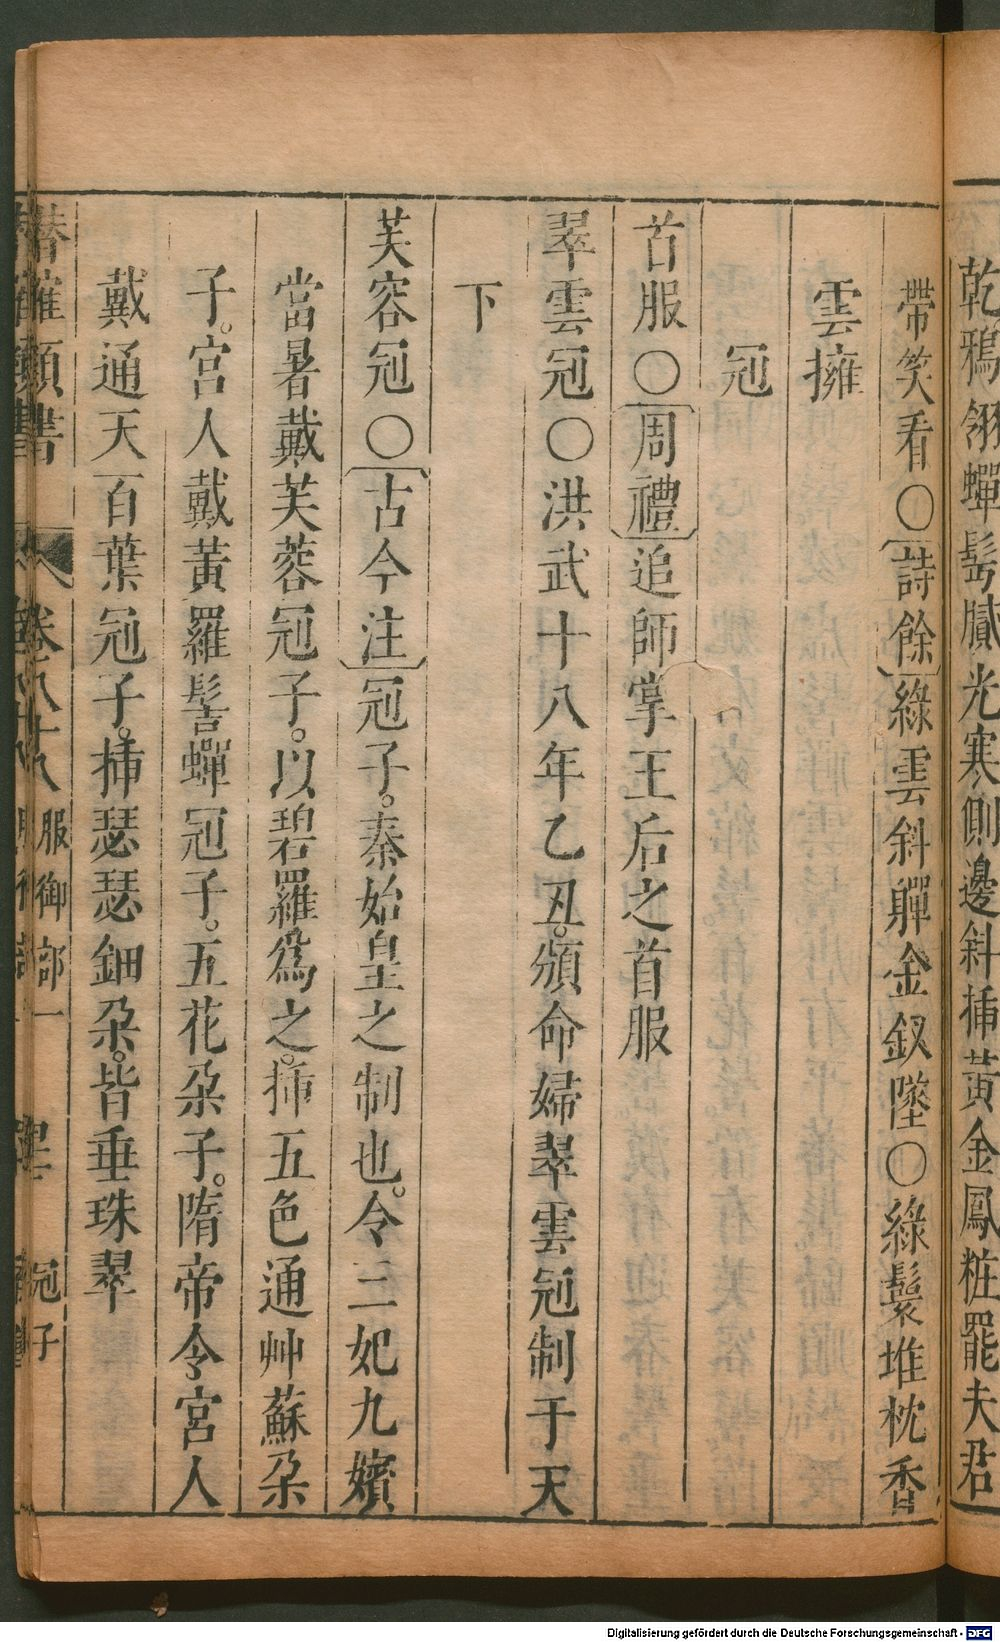 乾鴉翎蟬髩膩光寒側邊斜揷黃金鳳粧罷夫君
帶笑看○詩餘綠雲斜軃金釵墜○綠鬟堆枕香
雲擁
冠
首服○周禮追師掌王后之首服
翠雲冠○洪武十八年乙丑。頒命婦翠雲冠制于天
下
芙容冠○古今注冠子。秦始皇之制也。令三妃九嬪
當暑戴芙蓉冠子。以碧羅爲之。揷五色通艸蘇朶
子。宮人戴黃羅髻蟬冠子。五花朶子。隋帝令宮人
戴通天百葉冠子。揷瑟瑟鈿朶。皆垂珠翠
潛確類書 卷八十八 服御部一 冠子
Digitalisierung gefördert durch die Deutsche Forschungsgemeinschaft - DFG